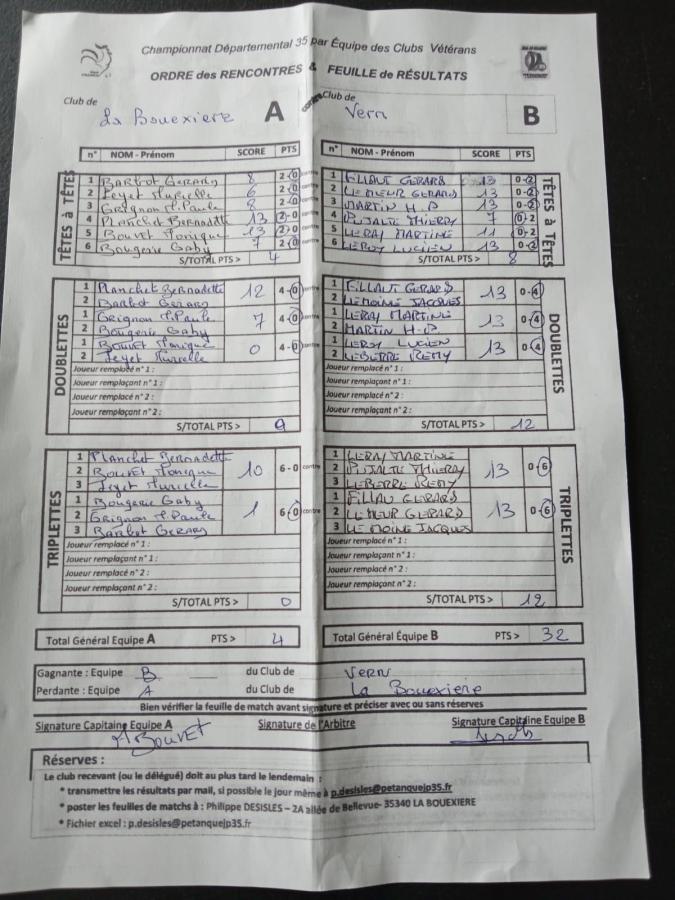 Championnat Départemental 35 par Équipe des Clubs Vétérans
ORDRE des RENCONTRES & FEUILLE de RÉSULTATS
Club de La Bouexiere A contre Club de Vern B
n° NOM - Prénom SCORE PTS n° NOM - Prénom SCORE PTS
TÊTES à TÊTES
1 Barbot Gerard 8 2-0 contre 1 FILLAUT GERARD 13 0-2
2 Feyet Murielle 6 2-0 contre 2 LEMEUR GERARD 13 0-2
3 Grignon M.Paule 8 2-0 contre 3 MARTIN H.P 13 0-2
4 Planchet Bernadette 13 2-0 contre 4 PUJALTE THIERRY 7 0-2
5 Bouvet Monique 13 2-0 contre 5 LERAY MARTINE 11 0-2
6 Bougerie Gaby 7 2-0 contre 6 LEROY LUCIEN 13 0-2
S/TOTAL PTS > 4 S/TOTAL PTS > 8
DOUBLETTES
1 Planchet Bernadette 12 4-0 contre 1 FILLAUT GERARD 13 0-4
2 Barbot Gerard 2 LEMOINE JACQUES
1 Grignon M.Paule 7 4-0 contre 1 LERAY MARTINE 13 0-4
2 Bougerie Gaby 2 MARTIN H-P
1 Bouvet Monique 0 4-0 contre 1 LEROY LUCIEN 13 0-4
2 Feyet Murielle 2 LEBERRE REMY
Joueur remplacé n° 1 : Joueur remplacé n° 1 :
Joueur remplaçant n° 1 : Joueur remplaçant n° 1 :
Joueur remplacé n° 2 : Joueur remplacé n° 2 :
Joueur remplaçant n° 2 : Joueur remplaçant n° 2 :
S/TOTAL PTS > S/TOTAL PTS > 12
TRIPLETTES
1 Planchet Bernadette 1 LERAY MARTINE
2 Bouvet Monique 10 6-0 contre 2 PUJALTE THIERRY 13 0-6
3 Feyet Murielle 3 LEBERRE REMY
1 Bougerie Gaby 1 FILLAUT GERARD
2 Grignon M.Paule 1 6-0 contre 2 LEMEUR GERARD 13 0-6
3 Barbot Gerard 3 LE MOINE JACQUES
Joueur remplacé n° 1 : Joueur remplacé n° 1 :
Joueur remplaçant n° 1 : Joueur remplaçant n° 1 :
Joueur remplacé n° 2 : Joueur remplacé n° 2 :
Joueur remplaçant n° 2 : Joueur remplaçant n° 2 :
S/TOTAL PTS > 0 S/TOTAL PTS > 12
Total Général Equipe A PTS > 4 Total Général Équipe B PTS > 32
Gagnante : Equipe B du Club de Vern
Perdante : Equipe A du Club de La Bouexiere
Bien vérifier la feuille de match avant signature et préciser avec ou sans réserves
Signature Capitaine Equipe A Signature de l'Arbitre Signature Capitaine Equipe B
M BOUVET
Réserves :
Le club recevant (ou le délégué) doit au plus tard le lendemain :
* transmettre les résultats par mail, si possible le jour même à p.desisles@petanquejp35.fr
* poster les feuilles de matchs à : Philippe DESISLES – 2A allée de Bellevue- 35340 LA BOUEXIERE
* Fichier excel : p.desisles@petanquejp35.fr